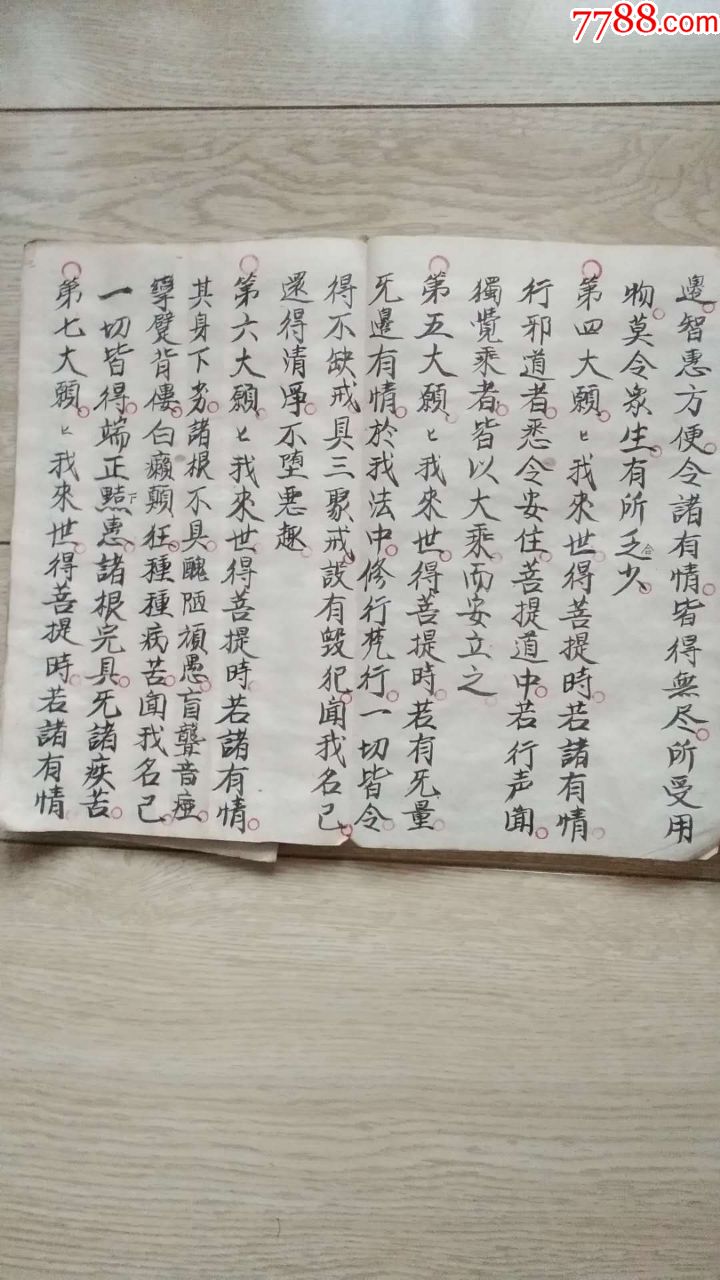 7788.com
邊智惠方便令諸有情皆得無尽所受用
物莫令眾生有所乏少
第四大願匕我來世得菩提時若諸有情
行邪道者悉令安住菩提道中若行声聞
獨覺乘者皆以大乘而安立之
第五大願匕我來世得菩提時若有旡量
旡邊有情於我法中修行梵行一切皆令
得不缺戒具三聚戒設有毀犯聞我名已
還得清淨不堕惡趣
第六大願匕我來世得菩提時若諸有情
其身下劣諸根不具醜陋頑愚盲聾音瘂
孿躄背僂白癩顛狂種種病苦聞我名已
一切皆得端正黠惠諸根完具旡諸疾苦
第七大願匕我來世得菩提時若諸有情